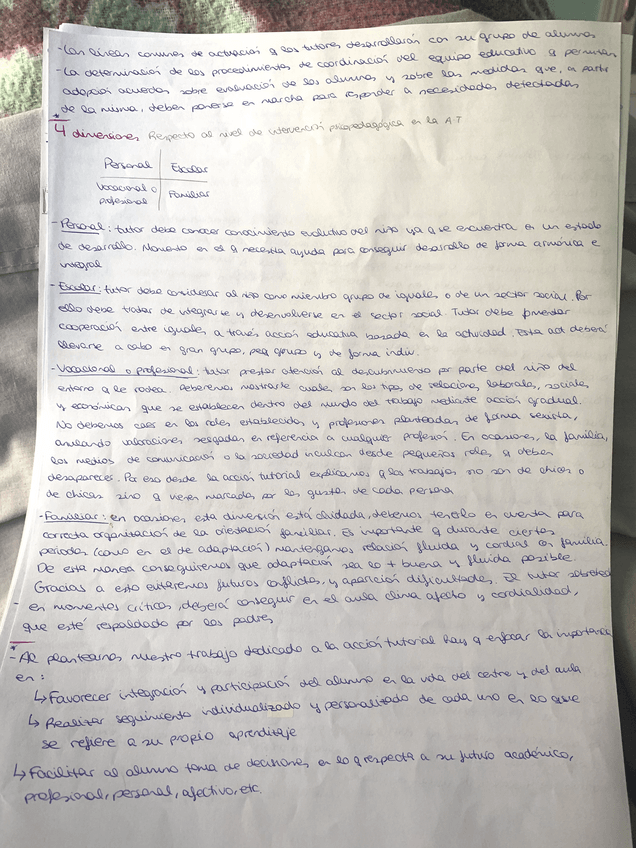 - Las líneas comunes de actuación q los tutores desarrollarán con su grupo de alumnos
- La determinación de los procedimientos de coordinación del equipo educativo q permitan
adoptar acuerdos sobre evaluación de los alumnos y sobre las medidas que, a partir
de la misma, deben ponerse en marcha para responder a necesidades detectadas
* 4 dimensiones Respecto al nivel de intervención psicopedagógica en la A.T
Personal | Escolar
Vocacional o profesional | Familiar
- Personal: tutor debe conocer conocimiento evolutivo del niño ya q se encuentra en un estado
de desarrollo. Momento en el q necesita ayuda para conseguir desarrollo de forma armónica e
integral
- Escolar: tutor debe considerar al niño como miembro grupo de iguales o de un sector social. Por
ello debe tratar de integrarse y desenvolverse en el sector social. Tutor debe fomentar
cooperación entre iguales a través acción educativa basada en la actividad. Esta act deberá
llevarse a cabo en gran grupo, peq grupo y de forma indiv.
- Vocacional o profesional: tutor prestar atención al descubrimiento por parte del niño del
entorno q le rodea. Deberemos mostrarle cuales son los tipos de relaciones laborales, sociales
y económicas que se establecen dentro del mundo del trabajo mediante acción gradual.
No debemos caer en los roles establecidos y profesiones planteadas de forma sexista,
anulando valoraciones sesgadas en referencia a cualquier profesión. En ocasiones, la familia,
los medios de comunicación o la sociedad inculcan desde pequeños roles q deben
desaparecer. Por eso desde la acción tutorial explicamos q los trabajos no son de chicos o
de chicas sino q vienen marcados por los gustos de cada persona
- Familiar: en ocasiones esta dimensión está olvidada, debemos tenerlo en cuenta para
correcta organización de la orientación familiar. Es importante q durante ciertos
periodos (como en el de adaptación) mantengamos relación fluida y cordial en familia.
De esta manera conseguiremos que adaptación sea lo + buena y fluida posible.
Gracias a esto evitaremos futuros conflictos, y aparición dificultades. El tutor sobretodo
- en momentos críticos, deberá conseguir en el aula clima afecto y cordialidad,
que esté respaldado por los padres
*
- Al plantearnos nuestro trabajo dedicado a la acción tutorial hay q enfocar la importancia
en:
↳ Favorecer integración y participación del alumno en la vida del centro y del aula
↳ Realizar seguimiento individualizado y personalizado de cada uno en lo que
se refiere a su propio aprendizaje
↳ Facilitar al alumno toma de decisiones en lo q respecta a su futuro académico,
profesional, personal, afectivo, etc.